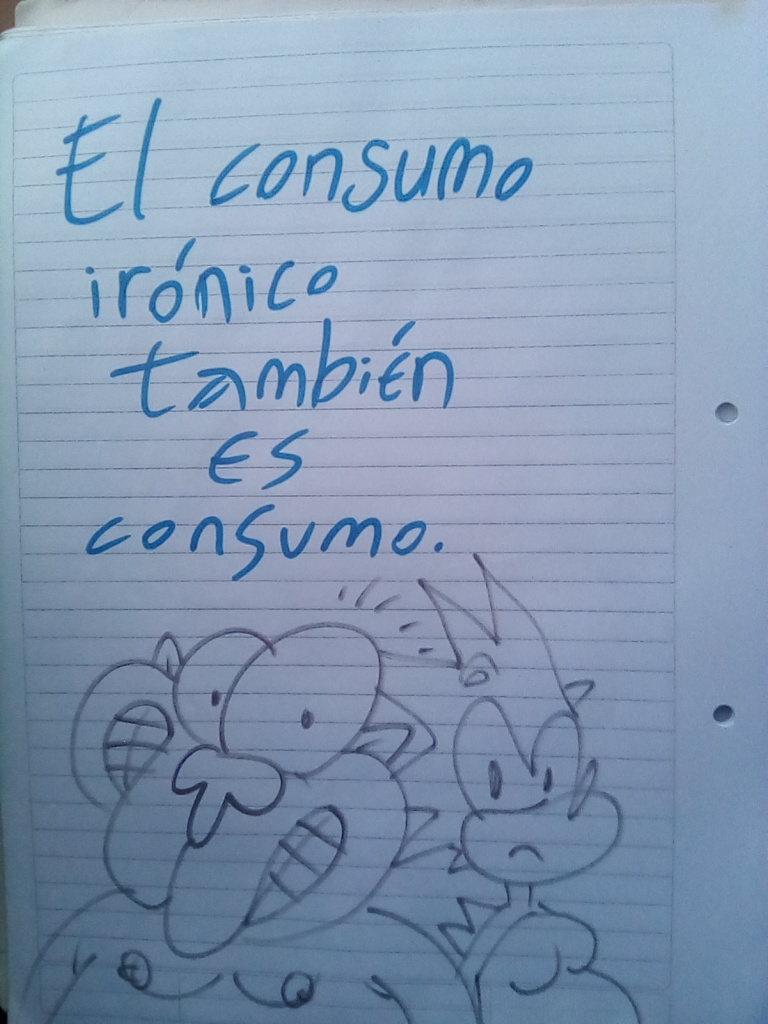 El consumo
irónico
también
es
consumo.